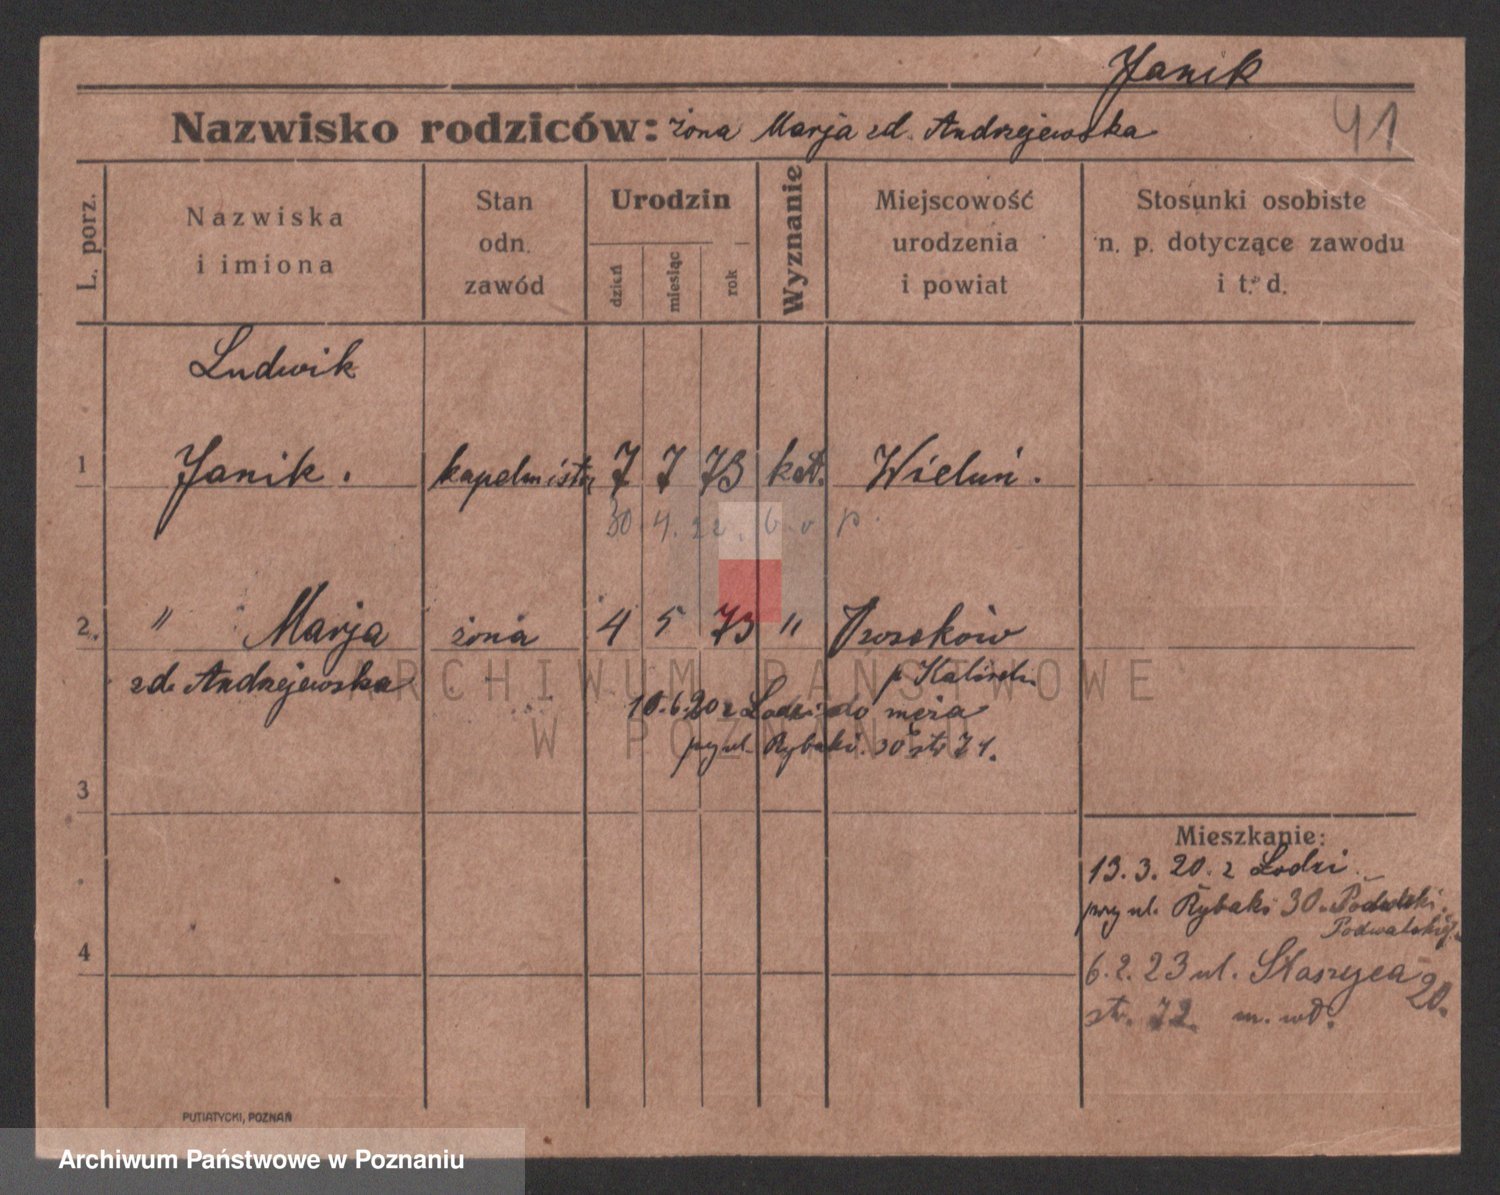 Janik
Nazwisko rodziców: żona Marja zd. Andrzejewska
41
L. porz.
Nazwiska
i imiona
Stan
odn.
zawód
Urodzin
dzień
miesiąc
rok
Wyznanie
Miejscowość
urodzenia
i powiat
Stosunki osobiste
n. p. dotyczące zawodu
i t. d.
Ludwik
1 Janik. kapelmistrz 7 7 73 kat. Wieluń.
30 4. 22.
2. " Marja żona 4 5 73 "
zd. Andrzejewska
10.6.20 z Łodzi do męża
przy ul. Rybaki. 30 str 71.
3
Mieszkanie:
13. 3. 20. z Łodzi
przy ul. Rybaki 30
4
6. 2. 23 ul. Staszyca 20.
str. 72 m. wł.
PUTIATYCKI, POZNAŃ
ARCHIWUM PAŃSTWOWE
W POZNANIU
Archiwum Państwowe w Poznaniu